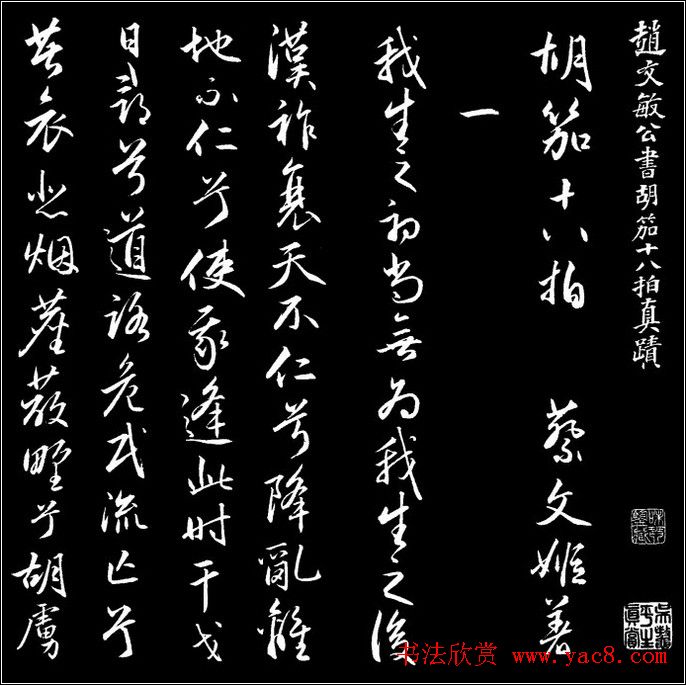 趙文敏公書胡笳十八拍真蹟
胡笳十八拍 蔡文姬著
一
我生之初尚無為我生之後
漢祚衰天不仁兮降亂離
地不仁兮使我逢此時干戈
日尋兮道路危民流亡兮
共哀悲烟塵蔽野兮胡虜
书法欣赏 www.yac8.com